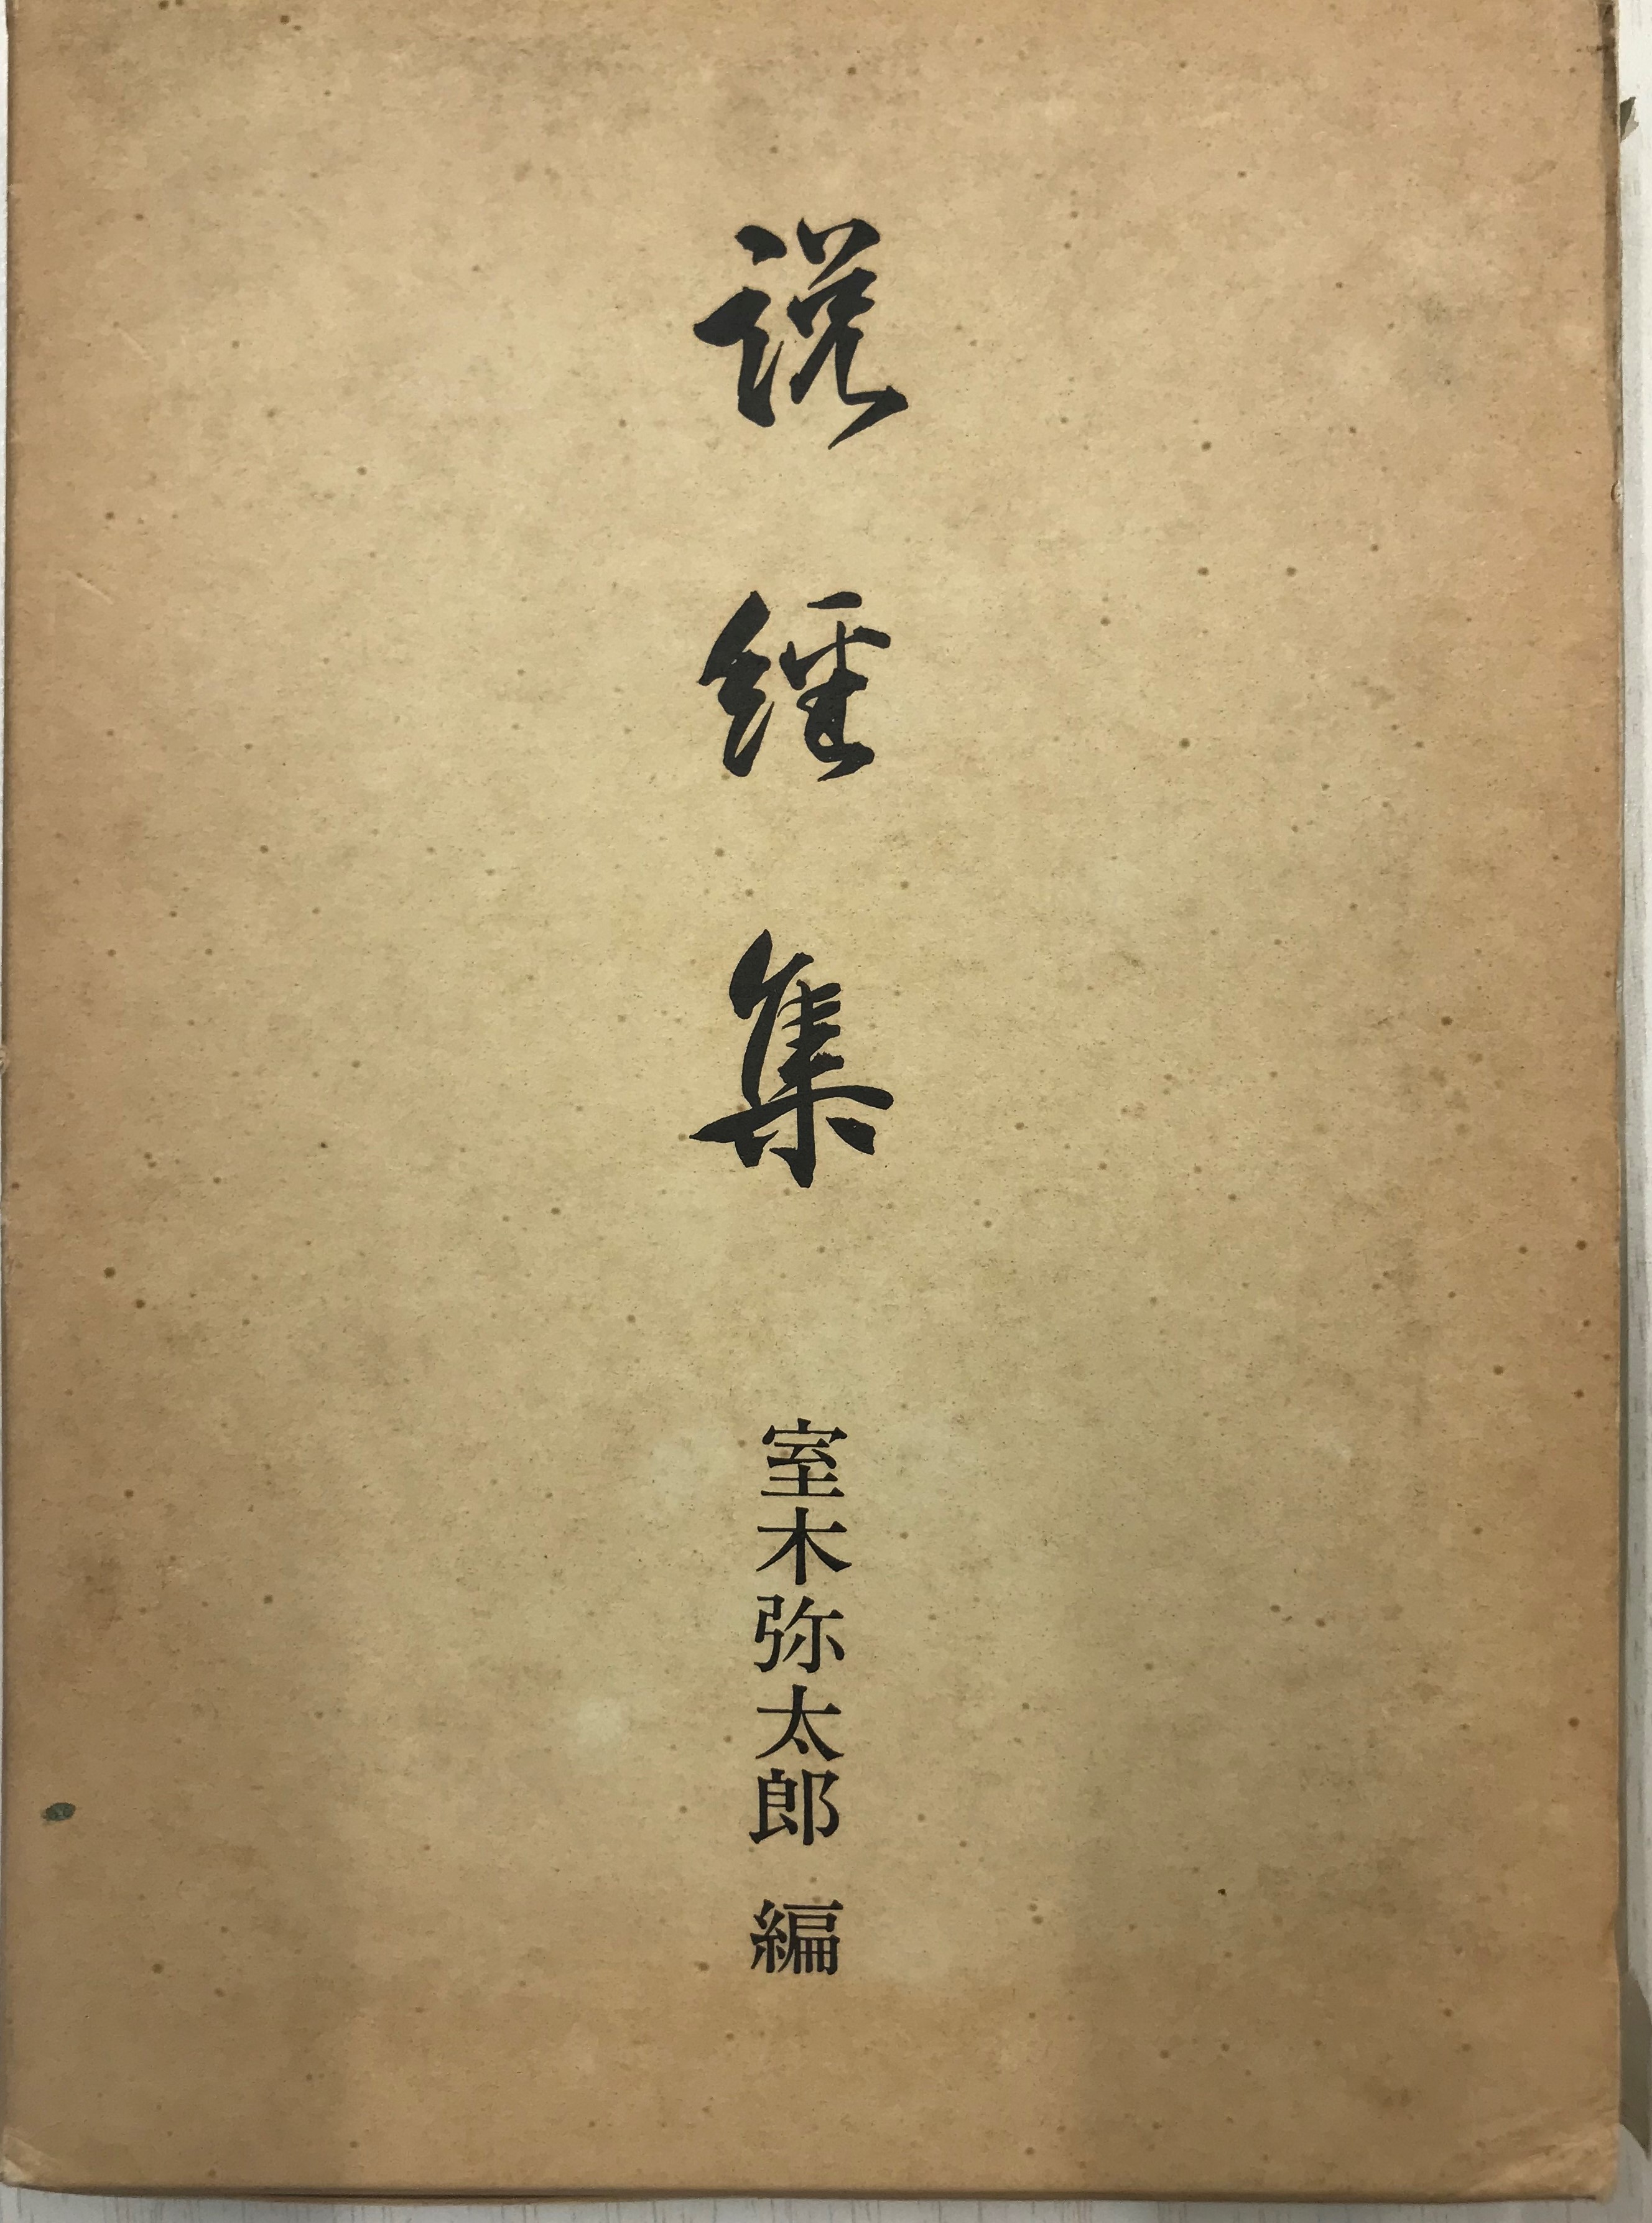 説経集
室木弥太郎 編